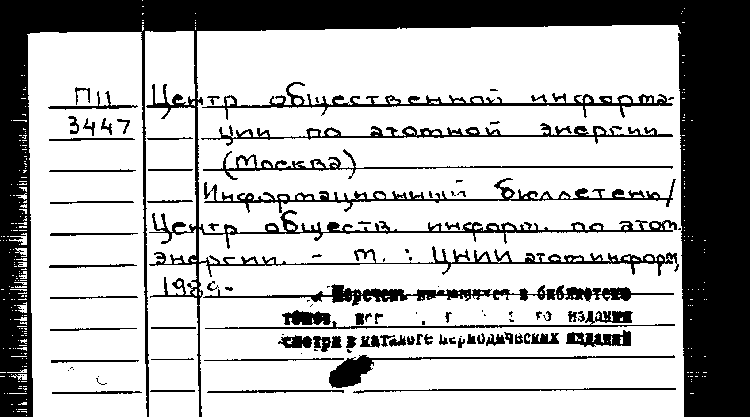 П11 Центр общественной информа-
3447 ции по атомной энергии
(Москва)
Информационный бюллетень/
Центр обществ. информ. по атом.
энергии. - М. : ЦНИИатоминформ,
1989-
Перечень имеющихся в библиотеке
томов, издания
смотри в каталоге периодических изданий